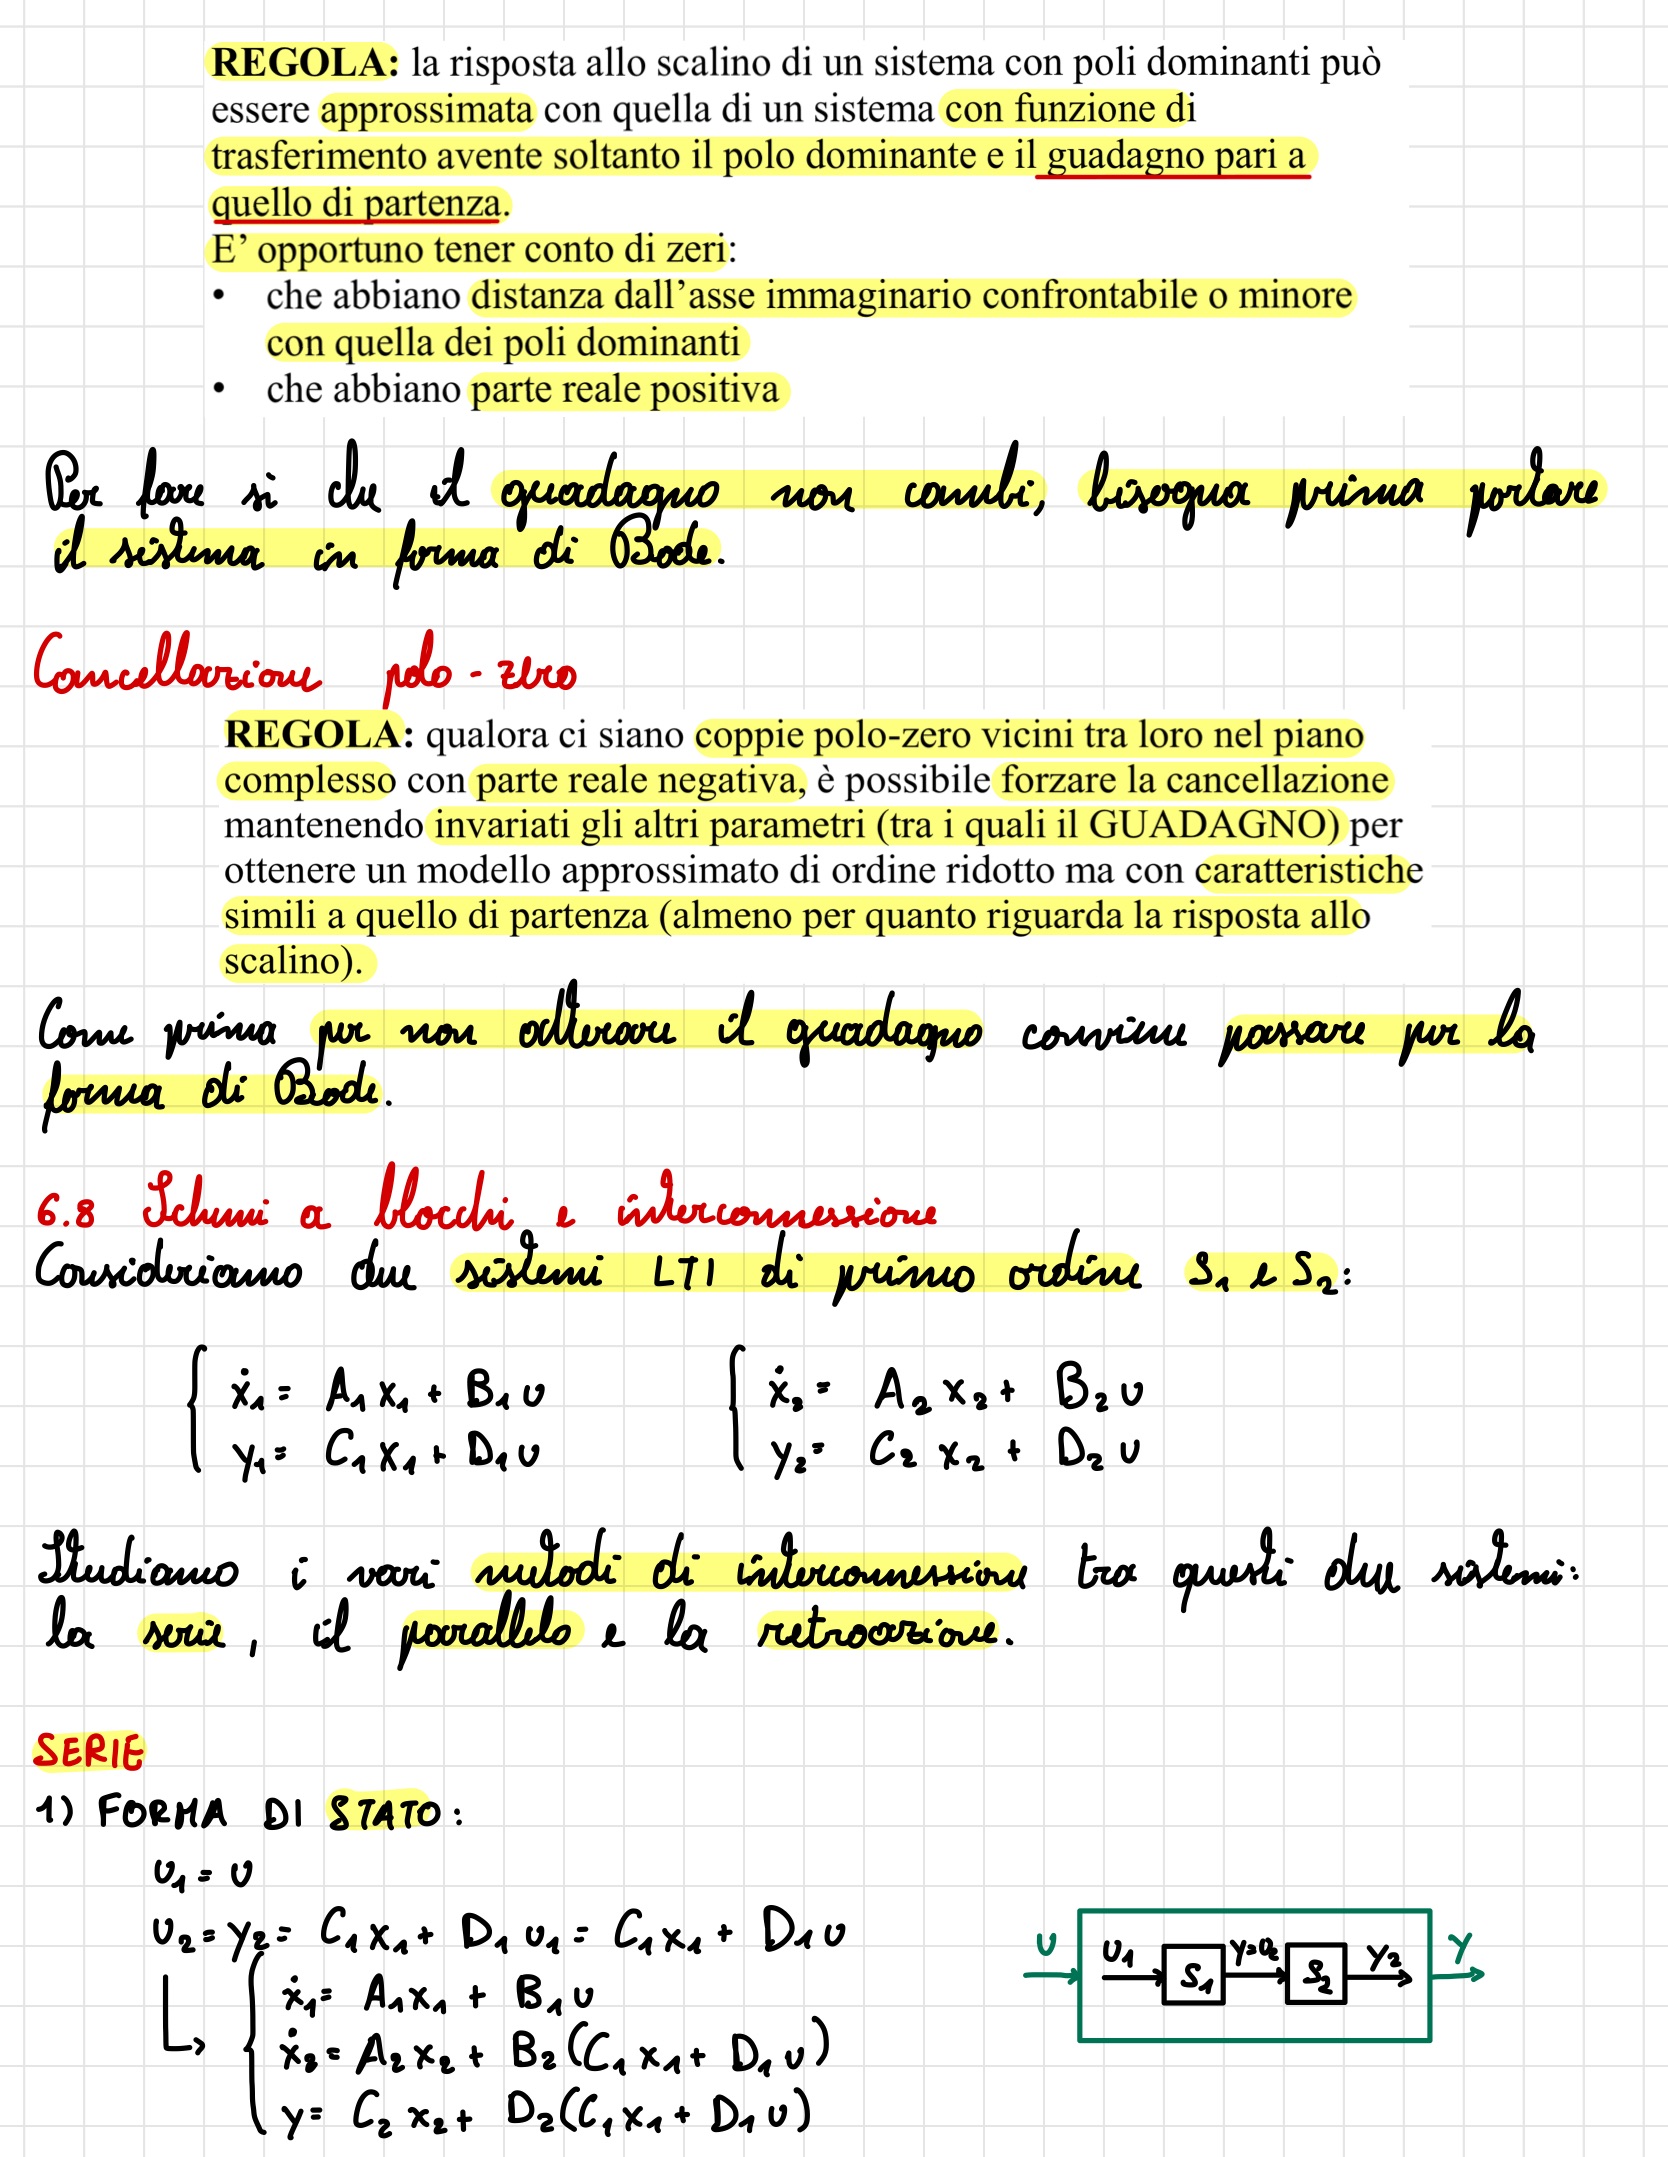 REGOLA: la risposta allo scalino di un sistema con poli dominanti può
essere approssimata con quella di un sistema con funzione di
trasferimento avente soltanto il polo dominante e il guadagno pari a
quello di partenza.
E’ opportuno tener conto di zeri:
• che abbiano distanza dall’asse immaginario confrontabile o minore
con quella dei poli dominanti
• che abbiano parte reale positiva
Per fare si che il guadagno non cambi, bisogna prima portare
il sistema in forma di Bode.
Cancellazione polo-zero
REGOLA: qualora ci siano coppie polo-zero vicini tra loro nel piano
complesso con parte reale negativa, è possibile forzare la cancellazione
mantenendo invariati gli altri parametri (tra i quali il GUADAGNO) per
ottenere un modello approssimato di ordine ridotto ma con caratteristiche
simili a quello di partenza (almeno per quanto riguarda la risposta allo
scalino).
Come prima per non alterare il guadagno conviene passare per la
forma di Bode.
6.8 Schemi a blocchi e interconnessione
Consideriamo due sistemi LTI di primo ordine S₁ e S₂:
ẋ₁ = A₁ x₁ + B₁ u
y₁ = C₁ x₁ + D₁ u
ẋ₂ = A₂ x₂ + B₂ u
y₂ = C₂ x₂ + D₂ u
Studiamo i vari metodi di interconnessione tra questi due sistemi:
la serie, il parallelo e la retroazione.
SERIE
1) FORMA DI STATO:
u₁ = u
u₂ = y₂ = C₁ x₁ + D₁ u₁ = C₁ x₁ + D₁ u
ẋ₁ = A₁ x₁ + B₁ u
ẋ₂ = A₂ x₂ + B₂ (C₁ x₁ + D₁ u)
y = C₂ x₂ + D₂ (C₁ x₁ + D₁ u)
u u₁ S₁ y=u₂ S₂ y₂ y